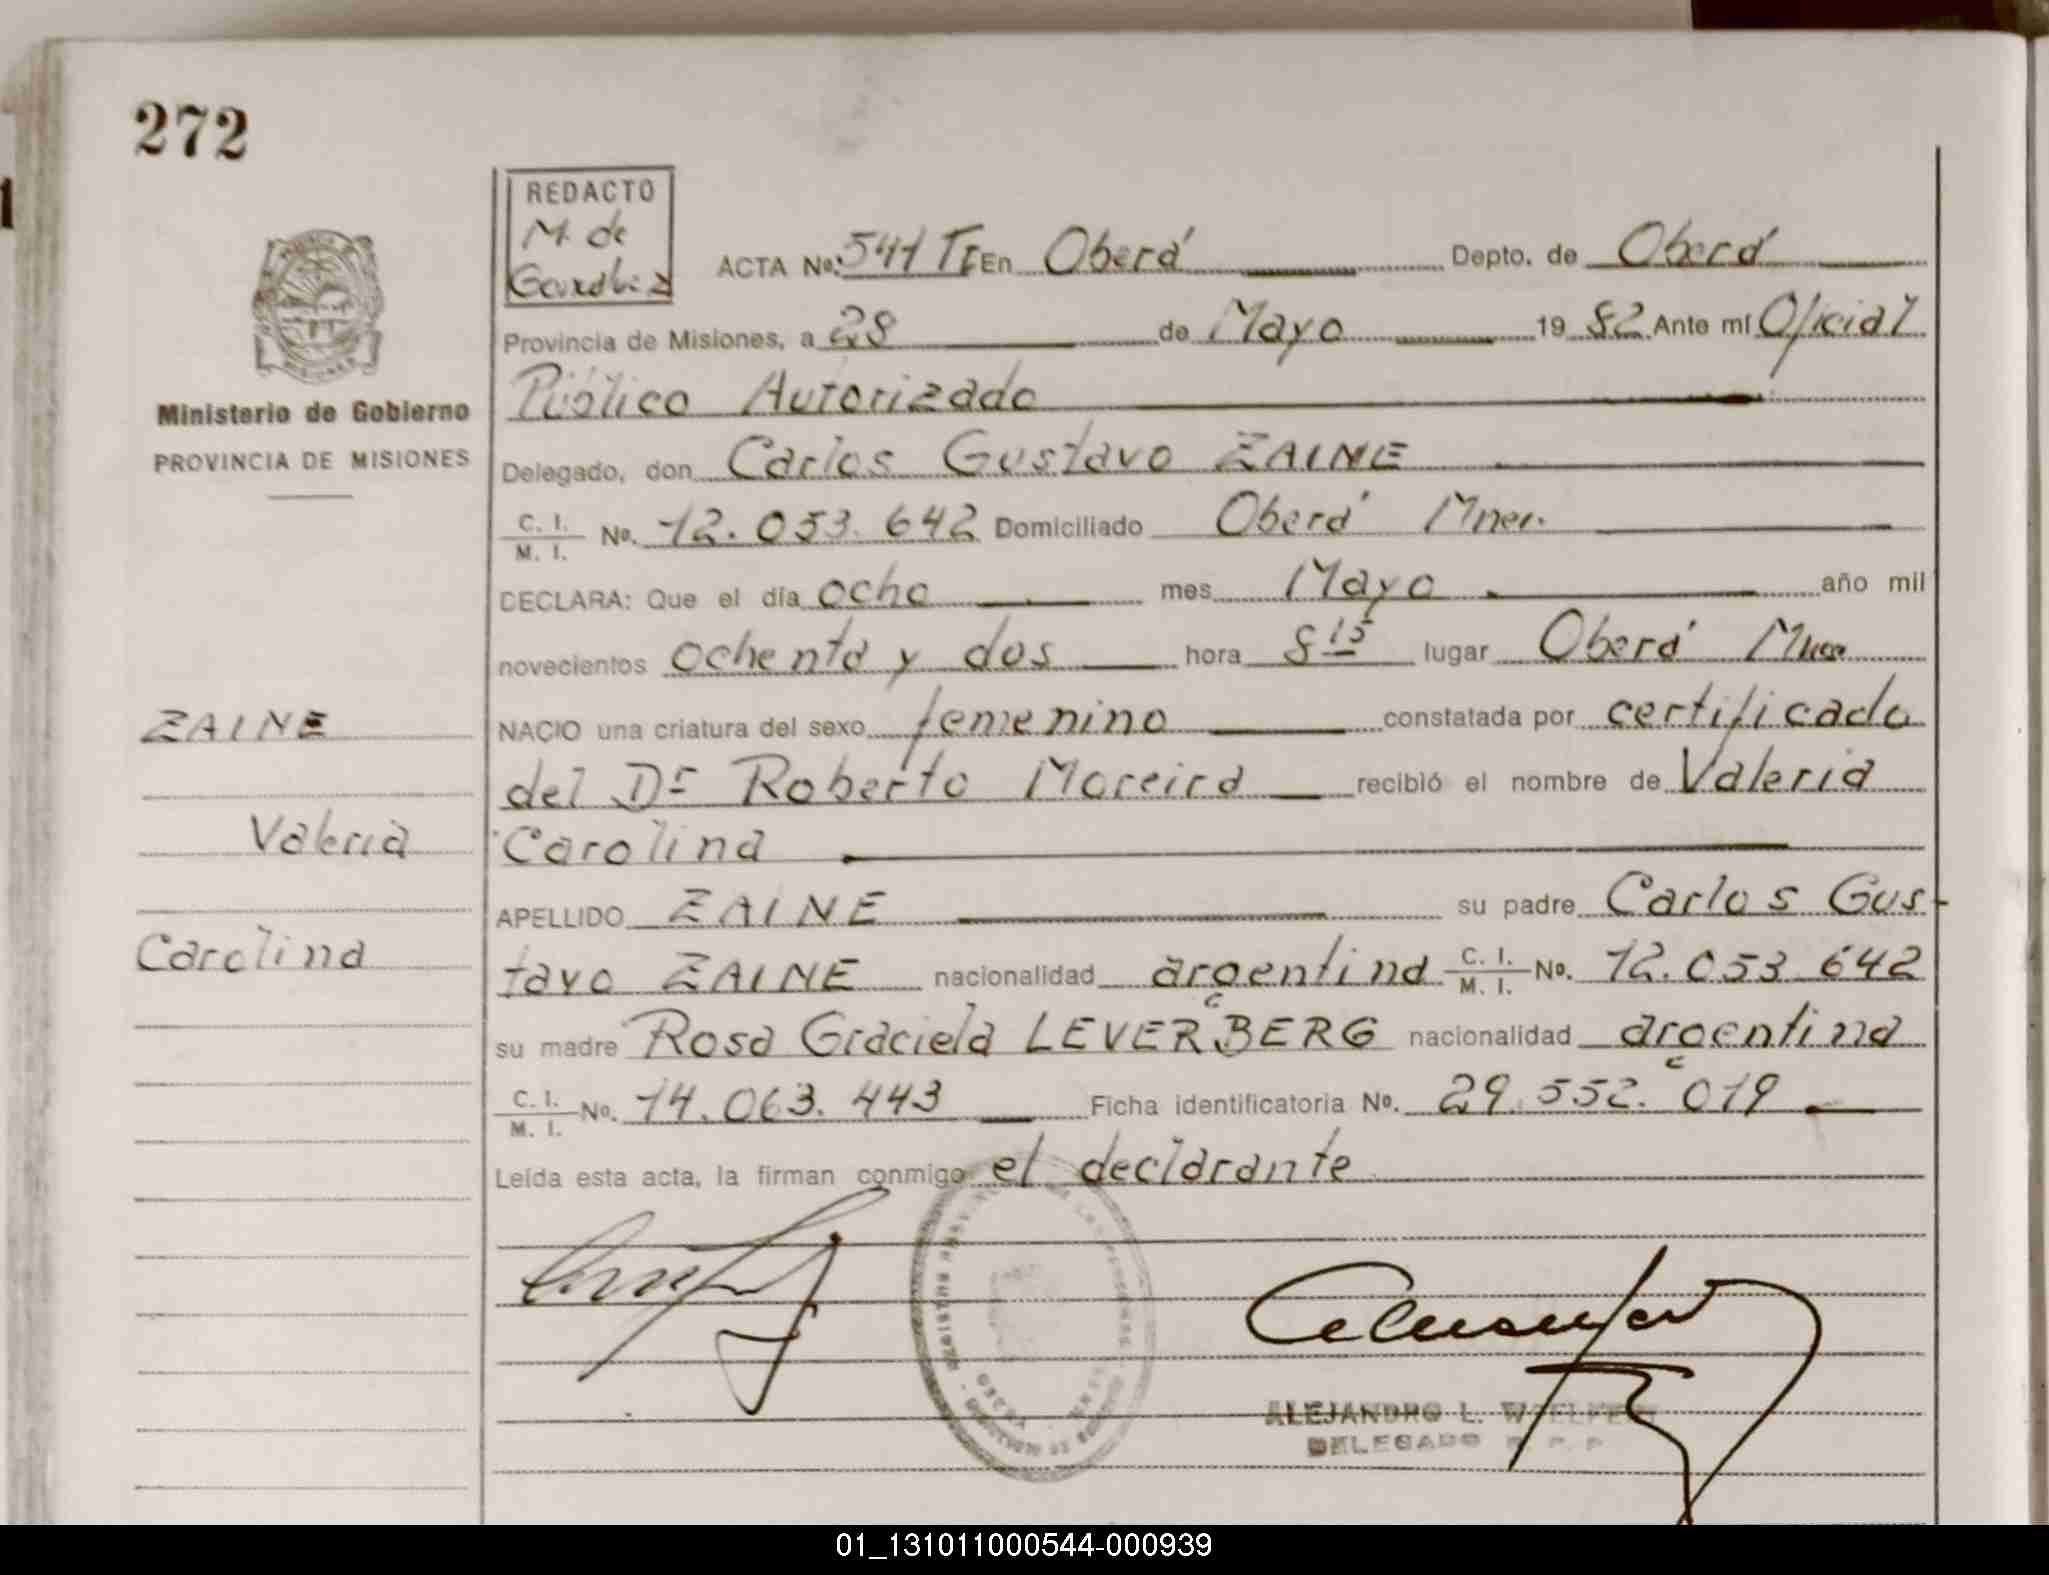 272
REDACTO
M. de
ACTA No. 541 TI En Oberá Depto. de Oberá
Provincia de Misiones, a 28 de Mayo 19 82 Ante mí Oficial
Ministerio de Gobierno
PROVINCIA DE MISIONES
Público Autorizado
Delegado, don Carlos Gustavo ZAINE
C. I.
M. I. No. 12.053.642 Domiciliado Oberá Mnes.
DECLARA: Que el día ocho mes Mayo año mil
novecientos ochenta y dos hora 8 15 lugar Oberá Mnes
NACIO una criatura del sexo femenino constatada por certificado
del Dr Roberto Moreira recibió el nombre de Valeria
Carolina
APELLIDO ZAINE su padre Carlos Gus-
tavo ZAINE nacionalidad argentina C. I. M. I. No. 12.053.642
su madre Rosa Graciela LEVERBERG nacionalidad argentina
C. I. M. I. No. 14.063.443 Ficha identificatoria No. 29.552.019
Leída esta acta, la firman conmigo el declarante
ZAINE
Valeria
Carolina
ALEJANDRO L.
DELEGADO
01_131011000544-000939